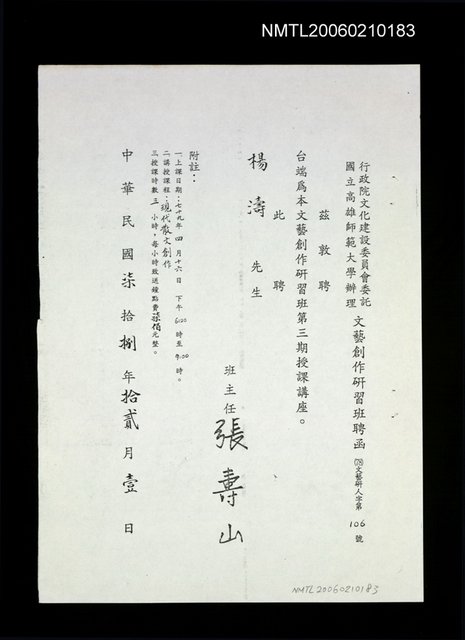 NMTL20060210183
行政院文化建設委員會委託
國立高雄師範大學辦理
文藝創作研習班聘函
(78)文藝研人字第 106 號
茲敦聘
台端為本文藝創作研習班第三期授課講座。
此聘
楊濤先生
班主任 張壽山
附註：
一上課日期：七十九年 四 月十六日 下午 6:20 時至 9:00 時。
二講授課程：現代散文創作
三授課時數 三 小時，每小時致送鐘點費柒佰元整。
中華民國柒拾捌年拾貳月壹日
NMTL20060210183